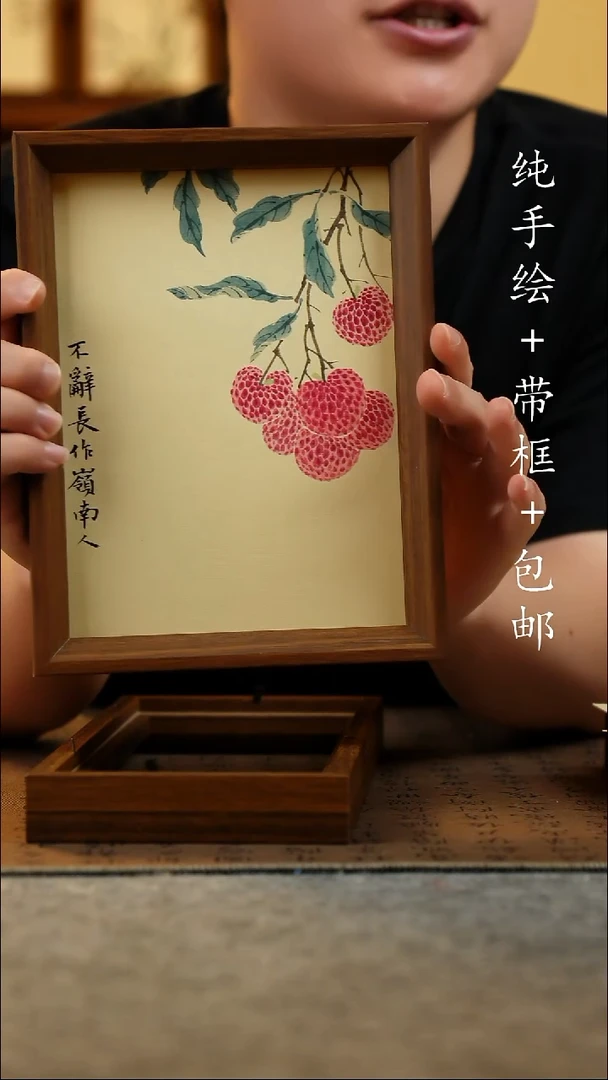 纯手绘+带框+包邮
不辭長作嶺南人